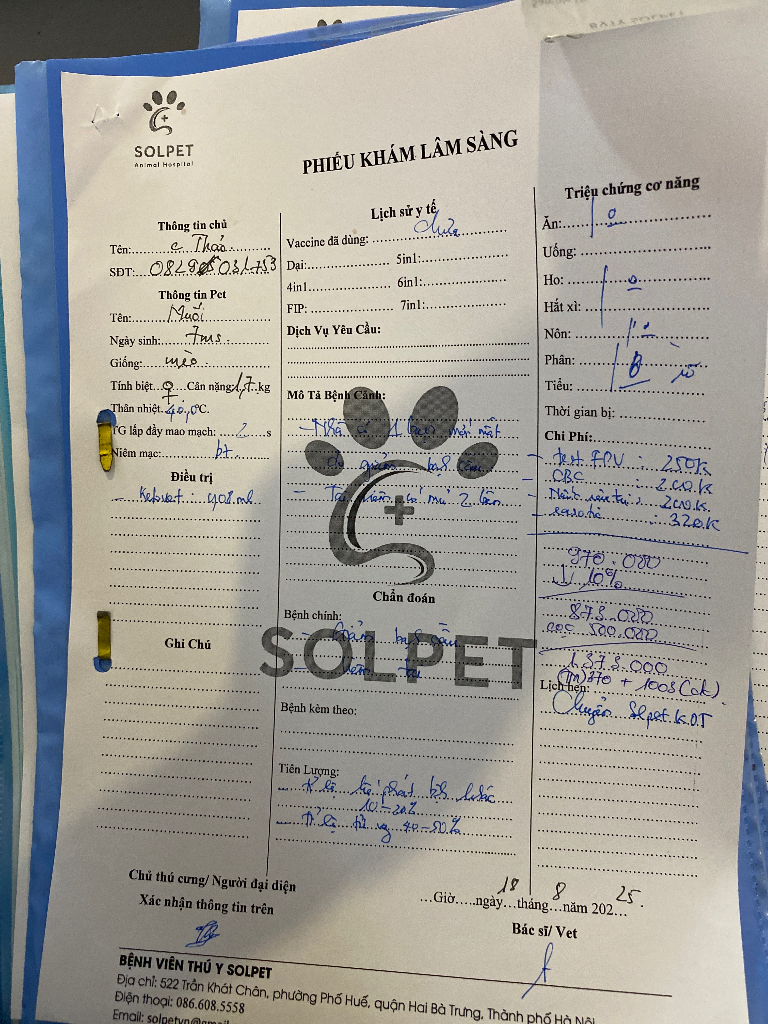 SOLPET
Animal Hospital
PHIẾU KHÁM LÂM SÀNG
Thông tin chủ
Tên: c Thảo
SĐT:
Thông tin Pet
Tên: Muối
Ngày sinh: 7ms
Giống: mèo
Tính biệt ♀ Cân nặng 1,7 kg
Thân nhiệt 40,0°C.
TG lấp đầy mao mạch: 2 s
Niêm mạc: bt
Điều trị
Ghi Chú
Lịch sử y tế
Vaccine đã dùng: chưa
Dại: 5in1:
4in1 6in1:
FIP: 7in1:
Dịch Vụ Yêu Cầu:
Mô Tả Bệnh Cảnh:
- Nhà có 1 bạn mới mất
do giảm bạch cầu
2 lần
Chẩn đoán
Bệnh chính:
- Giảm bạch cầu
SOLPET
Bệnh kèm theo:
Tiên Lượng:
- Tỉ lệ bệnh khác
10-20%
- Tỉ lệ tử vg 40-50%
Triệu chứng cơ năng
Ăn:
Uống:
Ho:
Hắt xì:
Nôn:
Phân:
Tiểu:
Thời gian bị:
Chi Phí:
- test FPV : 250k
- CBC : 200k
200.k
: 320k
970.000
↓ 10%
873.000
cọc 500.000
1.373.000
Lịch hẹn:
Chuyển Solpet K.O.T
Chủ thú cưng/ Người đại diện
Xác nhận thông tin trên
...Giờ....ngày 18 tháng 8 năm 202 25
Bác sĩ/ Vet
BỆNH VIỆN THÚ Y SOLPET
Địa chỉ: 522 Trần Khát Chân, phường Phố Huế, quận Hai Bà Trưng, Thành phố Hà Nội
Điện thoại: 086.608.5558
Email: solpetvn@gmail